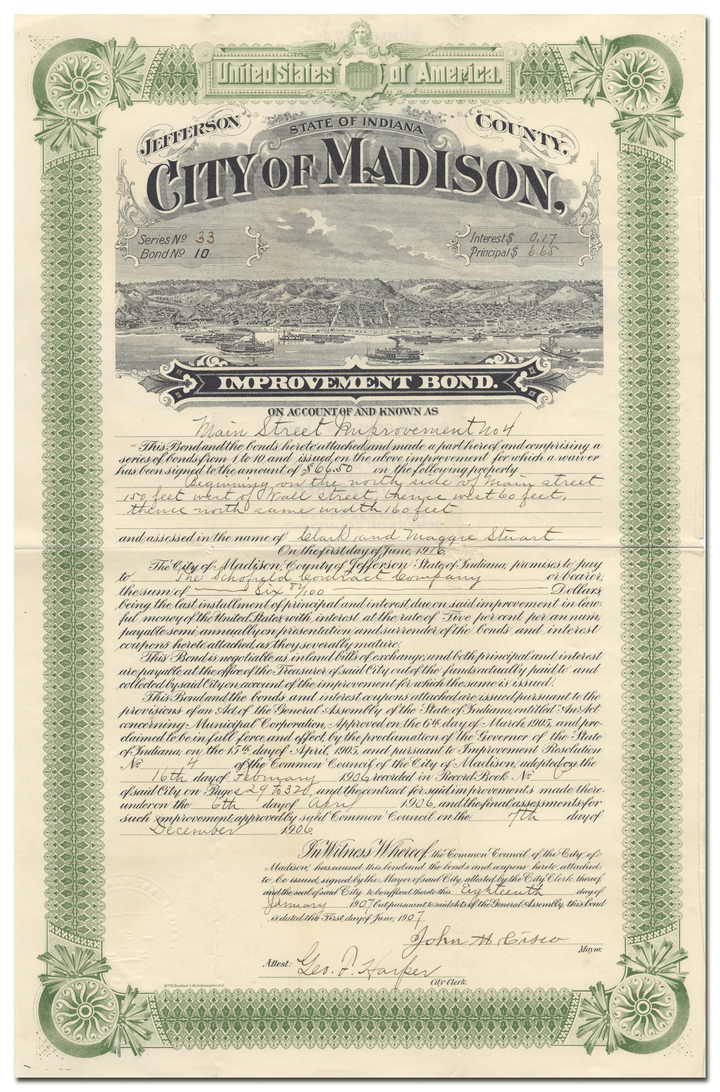 United States of America.
JEFFERSON STATE OF INDIANA COUNTY.
CITY OF MADISON.
Series No 33
Bond No 10
Interest $ 0.17
Principal $ 6.65
IMPROVEMENT BOND.
ON ACCOUNT OF AND KNOWN AS
Main Street Improvement No 4
This Bond and the bonds hereto attached and made a part hereof and comprising a
series of bonds from 1 to 10 and issued on the above improvement for which a waiver
has been signed to the amount of $66.50 on the following property
Beginning on the north side of Main street
150 feet west of Wall street, thence west 60 feet,
thence north same width 160 feet
and assessed in the name of Clark and Maggie Stuart
On the first day of June, 1916
The City of Madison, County of Jefferson State of Indiana, promises to pay
to The Schofield Contract Company or bearer,
the sum of Six 82/100 Dollars
being the last installment of principal and interest due on said improvement in law-
ful money of the United States with interest at the rate of Five per cent per annum,
payable semi annually on presentation and surrender of the bonds and interest
coupons hereto attached, as they severally mature.
This Bond is negotiable as inland bills of exchange, and both principal and interest
are payable at the office of the Treasurer of said City out of the funds actually paid to and
collected by said City on account of the improvement for which the same is issued.
This Bond and the bonds and interest coupons attached are issued pursuant to the
provisions of an Act of the General Assembly of the State of Indiana, entitled "An Act
concerning Municipal Corporation, Approved on the 6th day of March, 1905, and pro-
claimed to be in full force and effect, by the proclamation of the Governor of the State
of Indiana, on the 15th day of April, 1905, and pursuant to Improvement Resolution
No 4 of the Common Council of the City of Madison, adopted on the
16th day of February 1906, recorded in Record Book No
of said City, on Pages 29 to 320, and the contract for said improvements made there-
under on the 6th day of April 1906, and the final assessments for
such improvement, approved by said Common Council on the 7th day of
December 1906
In Witness Whereof, the Common Council of the City of
Madison, has caused this bond and the bonds and coupons hereto attached
to be issued, signed by the Mayor of said City, attested by the City Clerk thereof
and the seal of said City to be affixed thereto this Eighteenth day of
January 1907 but pursuant to said Acts of the General Assembly, this bond
is dated the First day of June, 1907
John W Cisco
Mayor.
Attest: Geo. F. Harper
City Clerk.